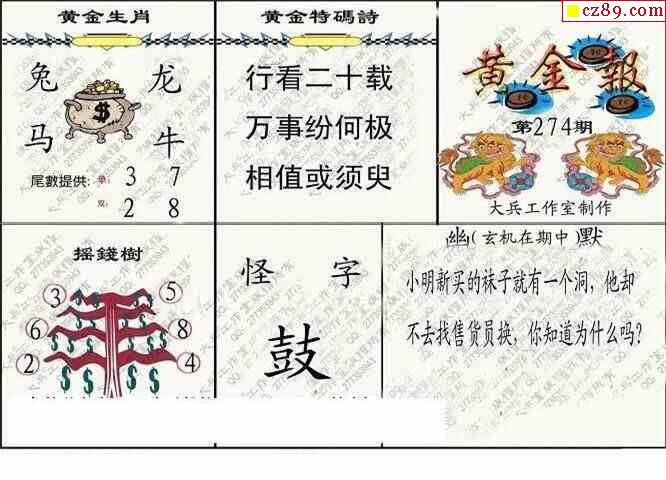 cz89.com
黄金生肖
兔 龙
马 牛
尾數提供: 单: 3 7
双: 2 8
黄金特碼詩
行看二十载
万事纷何极
相值或须臾
黄金報
第274期
大兵工作室制作
摇錢樹
3 5
6 8
2 4
怪 字
鼓
幽(玄机在期中)默
小明新买的袜子就有一个洞，他却
不去找售货员换，你知道为什么吗?